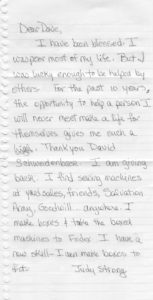 Dear Dave,
I have been blessed. I
was poor most of my life. But I
was lucky enough to be helped by
others. For the past 10 years,
the opportunity to help a person I
will never meet make a life for
themselves gives me such a
high. Thank you David
Schweidenback. I am giving
back. I find sewing machines
at yard sales, friends, Salvation
Army, Goodwill... anywhere. I
make boxes & take the boxed
machines to Fedex. I have a
new skill - I can make boxes to
fit.
Judy Strong